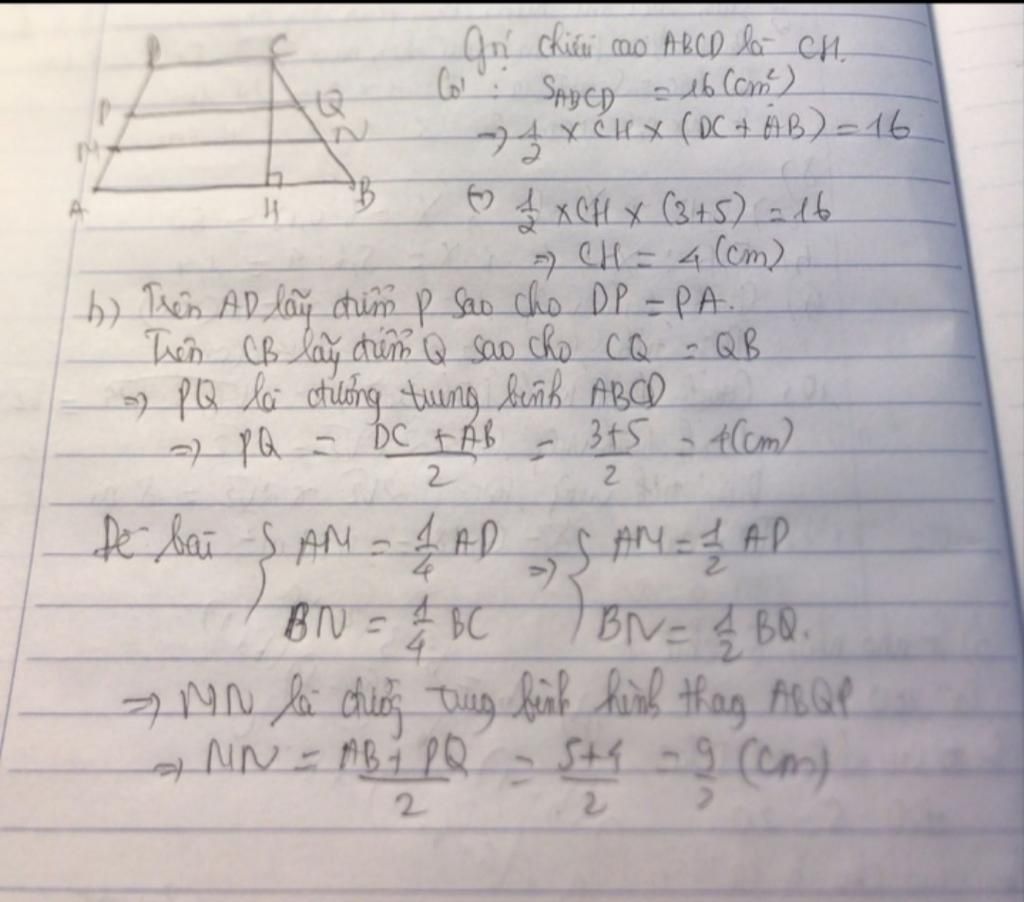 D C
P Q
M N
A H B
Gọi chiều cao ABCD là CH.
Có : S_ABCD = 16 (cm²)
=> 1/2 × CH × (DC + AB) = 16
<=> 1/2 × CH × (3+5) = 16
=> CH = 4 (cm)
b) Trên AD lấy điểm P sao cho DP = PA.
Trên CB lấy điểm Q sao cho CQ = QB
=> PQ là đường trung bình ABCD
=> PQ = (DC + AB)/2 = (3+5)/2 = 4 (cm)
Đề bài { AM = 1/4 AD => { AM = 1/2 AP
BN = 1/4 BC BN = 1/2 BQ.
=> MN là đường trung bình hình thang ABQP
=> MN = (AB + PQ)/2 = (5+4)/2 = 9/2 (cm)